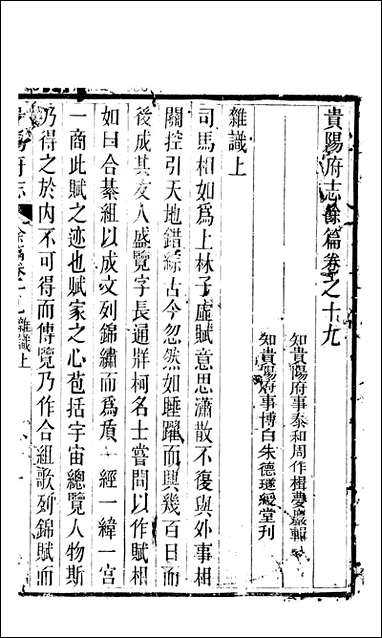 貴陽府志餘篇卷之十九
知貴陽府事泰和周作楫夢巖輯
知貴陽府事博白朱德璲綬堂刊
雜識上
司馬相如爲上林子虛賦意思瀟散不復與外事相
關控引天地錯綜古今忽然如睡躍而興幾百日而
後成其友人盛覽字長通牂柯名士嘗問以作賦相
如曰合綦組以成文列錦繡而爲質一經一緯一宮
一商此賦之迹也賦家之心苞括宇宙總覽人物斯
乃得之於内不可得而傳覽乃作合組歌列錦賦而
府志 餘篇卷十九 雜識上 一